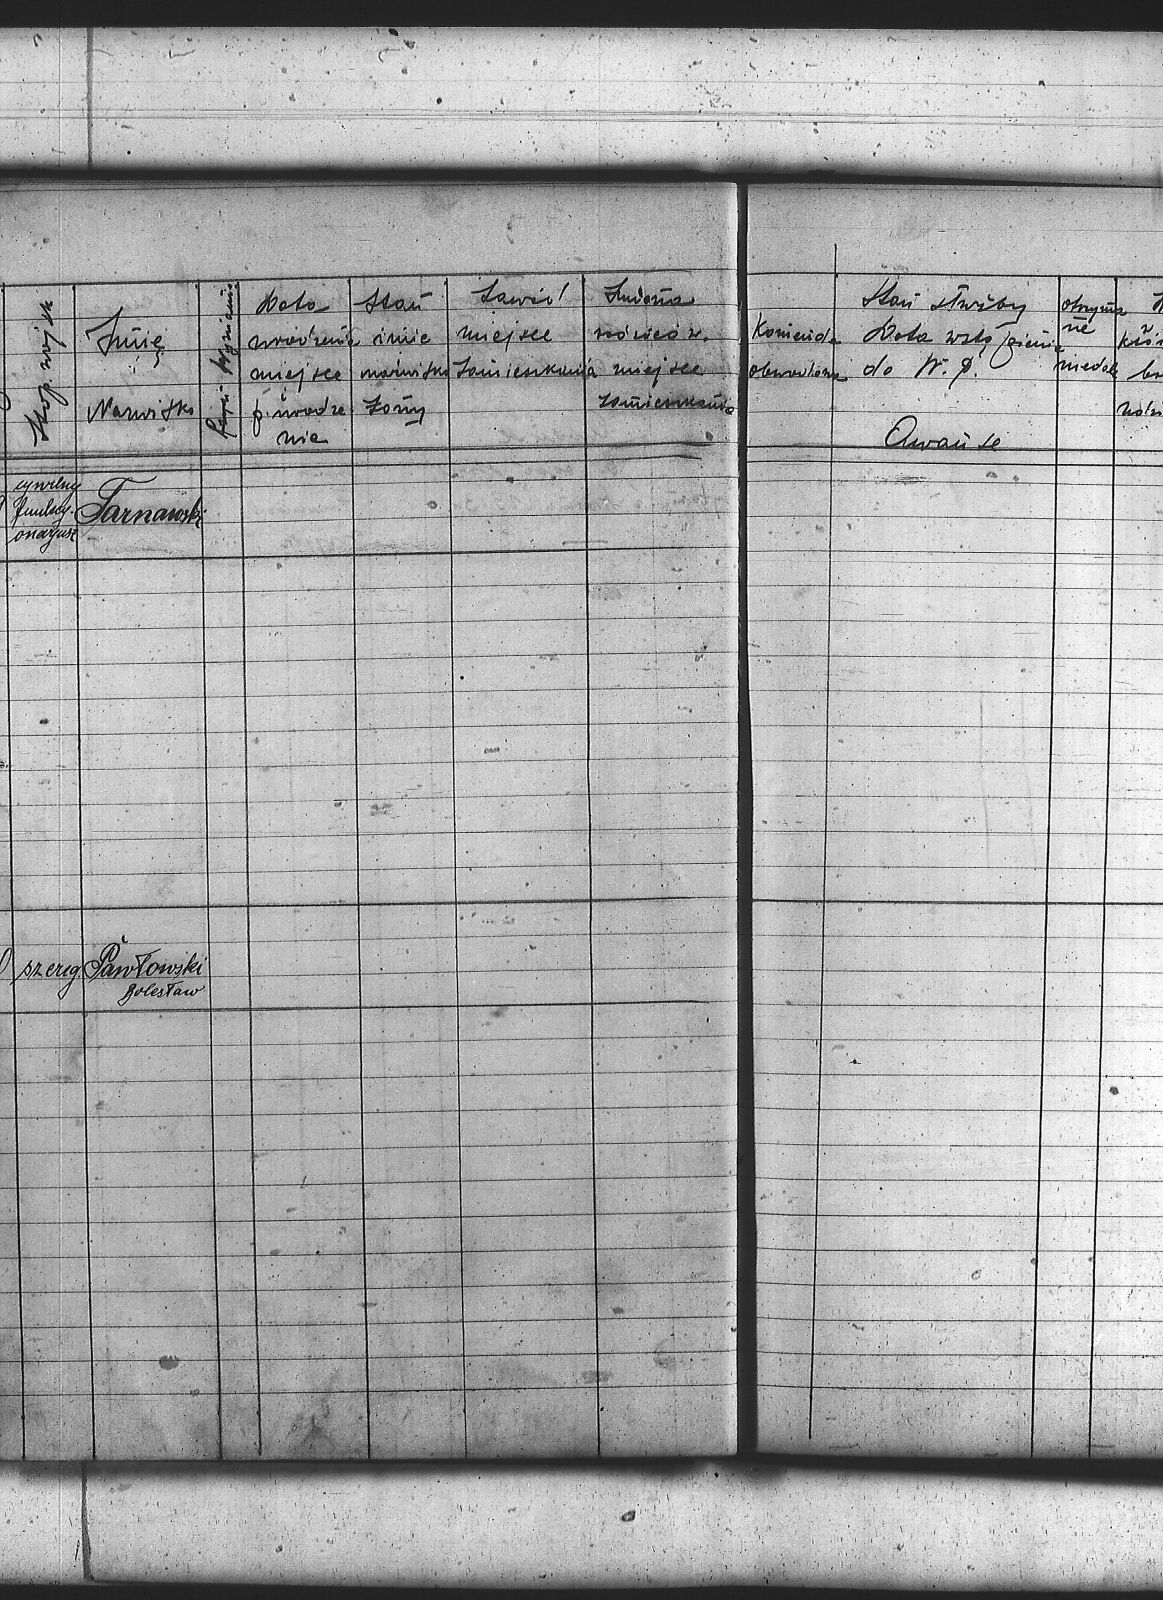 Stop. wojsk
Imię
i
Nazwisko
wyznanie
Data
urodzenia
miejsce
p. urodze
nia
Stan
imię
nazwisko
żony
Zawód
miejsce
Zamieszkania
Imiona
rodziców.
miejsce
zamieszkania
Komenda
obwodowa
Stan służby
Data wstąpienia
do W. P.
Awanse
otrzyma
ne
medale
cywilny
funkcy-
onarjusz
Tarnawski
szereg
Pawłowski
Bolesław